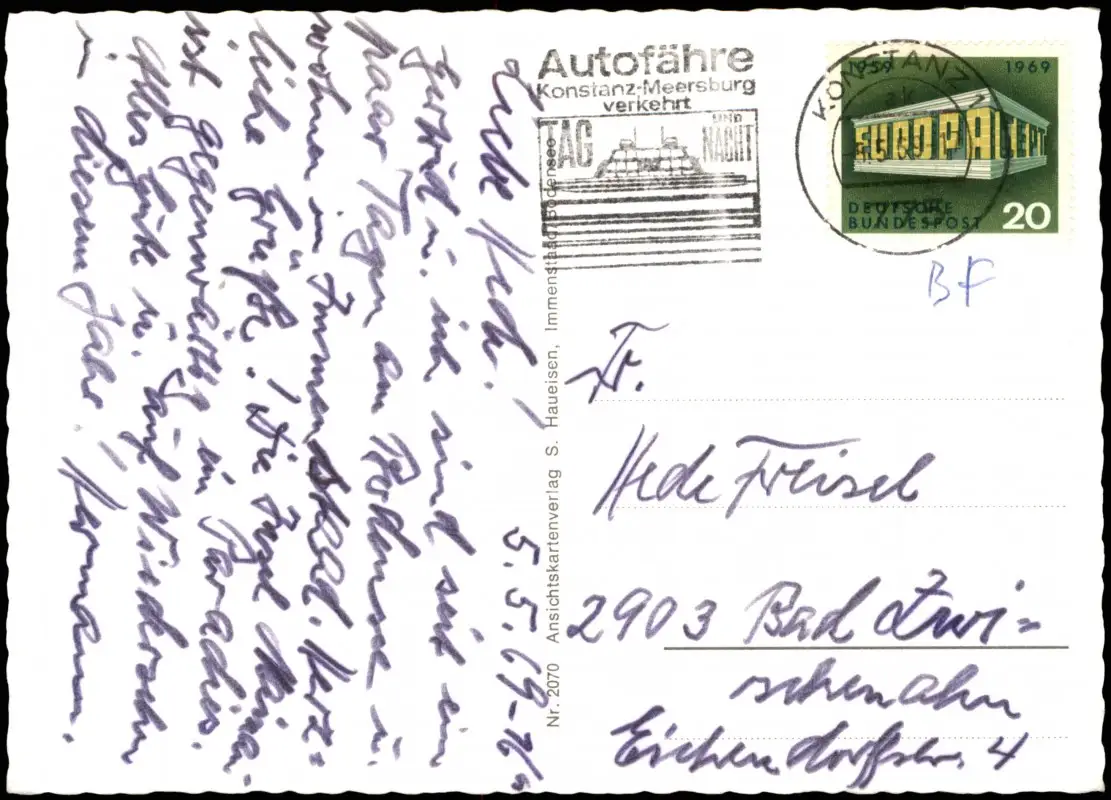 Liebe Hede! 5.5.69-16h
Gertrud u. ich sind seit ein
paar Tagen am Bodensee u.
wohnen in Immenstaad. Herz=
liche Grüße! Die Insel Mainau
ist gegenwärtig ein Paradies.
Alles Gute u. auf Wiedersehn
in diesem Jahr! Hermann.
Nr. 2070 Ansichtskartenverlag S. Haueisen, Immenstaad/Bodensee
Autofähre
Konstanz-Meersburg
verkehrt
TAG UND NACHT
KONSTANZ
1959 1969
EUROPA CEPT
DEUTSCHE
BUNDESPOST 20
BF
Fr.
Hede Freisel
2903 Bad Zwi=
schenahn
Eichendorffstr. 4